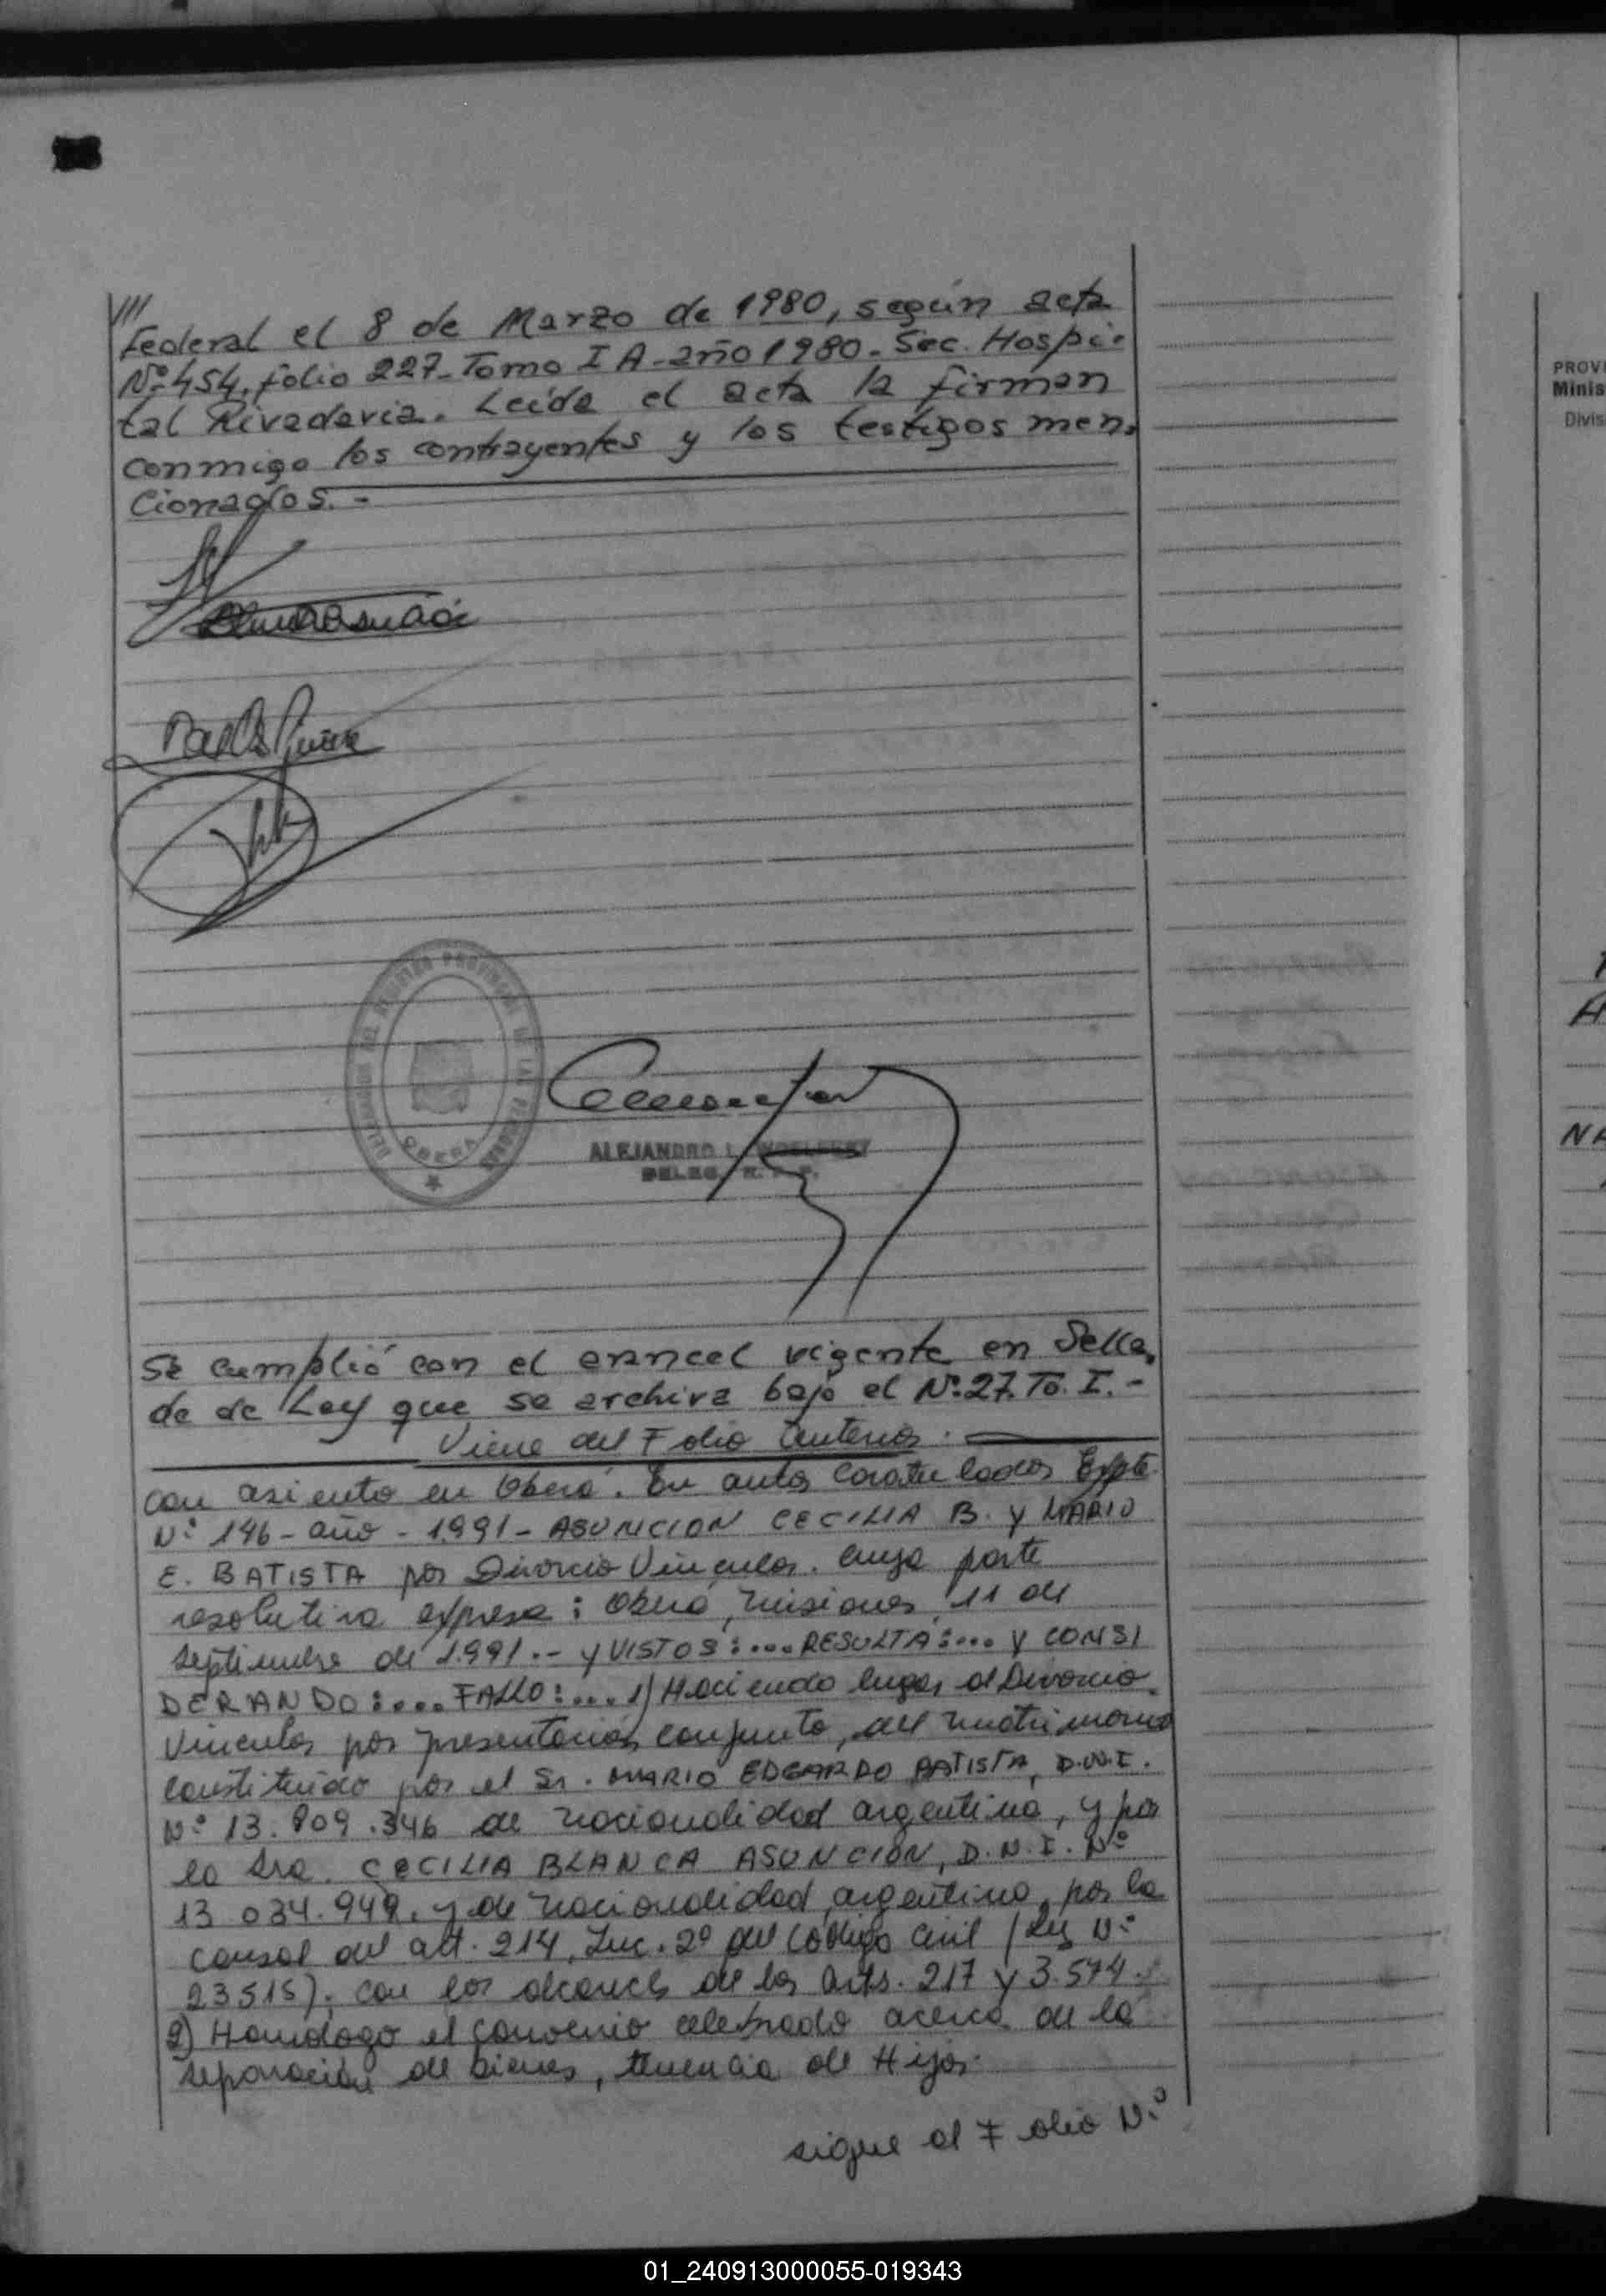 ///
Federal el 8 de Marzo de 1980, según acta
Nº 454. folio 227- Tomo I A- año 1980- Sec. Hospi-
tal Rivadavia. Leída el acta la firman
conmigo los contrayentes y los testigos men-
cionados.-
DELEGACION DEL REGISTRO PROVINCIAL DE LAS PERSONAS
OBERA
ALEJANDRO L.
DELEG. R. P. P.
Se cumplió con el arancel vigente en Sella-
do de Ley que se archiva bajo el Nº 27. To. I.-
Viene del Folio Anterior.
con asiento en Oberá. En autos Caratulados Expte.
Nº 146- año - 1.991- ASUNCION CECILIA B. y MARIO
E. BATISTA por Divorcio Vincular. Cuya parte
resolutiva expresa: Oberá, Misiones, 11 de
septiembre de 1.991.- y VISTOS:... RESULTA:... y CONSI
DERANDO:.... FALLO:.... 1) Haciendo lugar al Divorcio
Vincular por presentación conjunta, del matrimonio
constituido por el Sr. MARIO EDGARDO BATISTA, D.N.I.
Nº 13.809.346 de nacionalidad argentina, y por
la Sra. CECILIA BLANCA ASUNCIÓN, D.N.I. Nº
13.034.949. y de nacionalidad argentina, por la
causal del art. 214, Inc. 2º del Código Civil (Ley Nº
23515), con los alcances de los Arts. 217 y 3.574.
2) Homologo el convenio celebrado acerca de la
separación de bienes, tenencia de Hijos.
sigue al Folio Nº
PROVI
Minis
Divis
A
NA
01_240913000055-019343